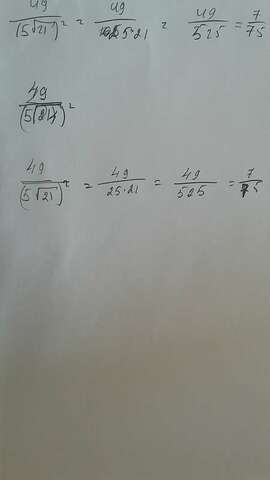 49/(5√21)² = 49/25·21 = 49/525 = 7/75
49/(5√21)²
49/(5√21)² = 49/25·21 = 49/525 = 7/75